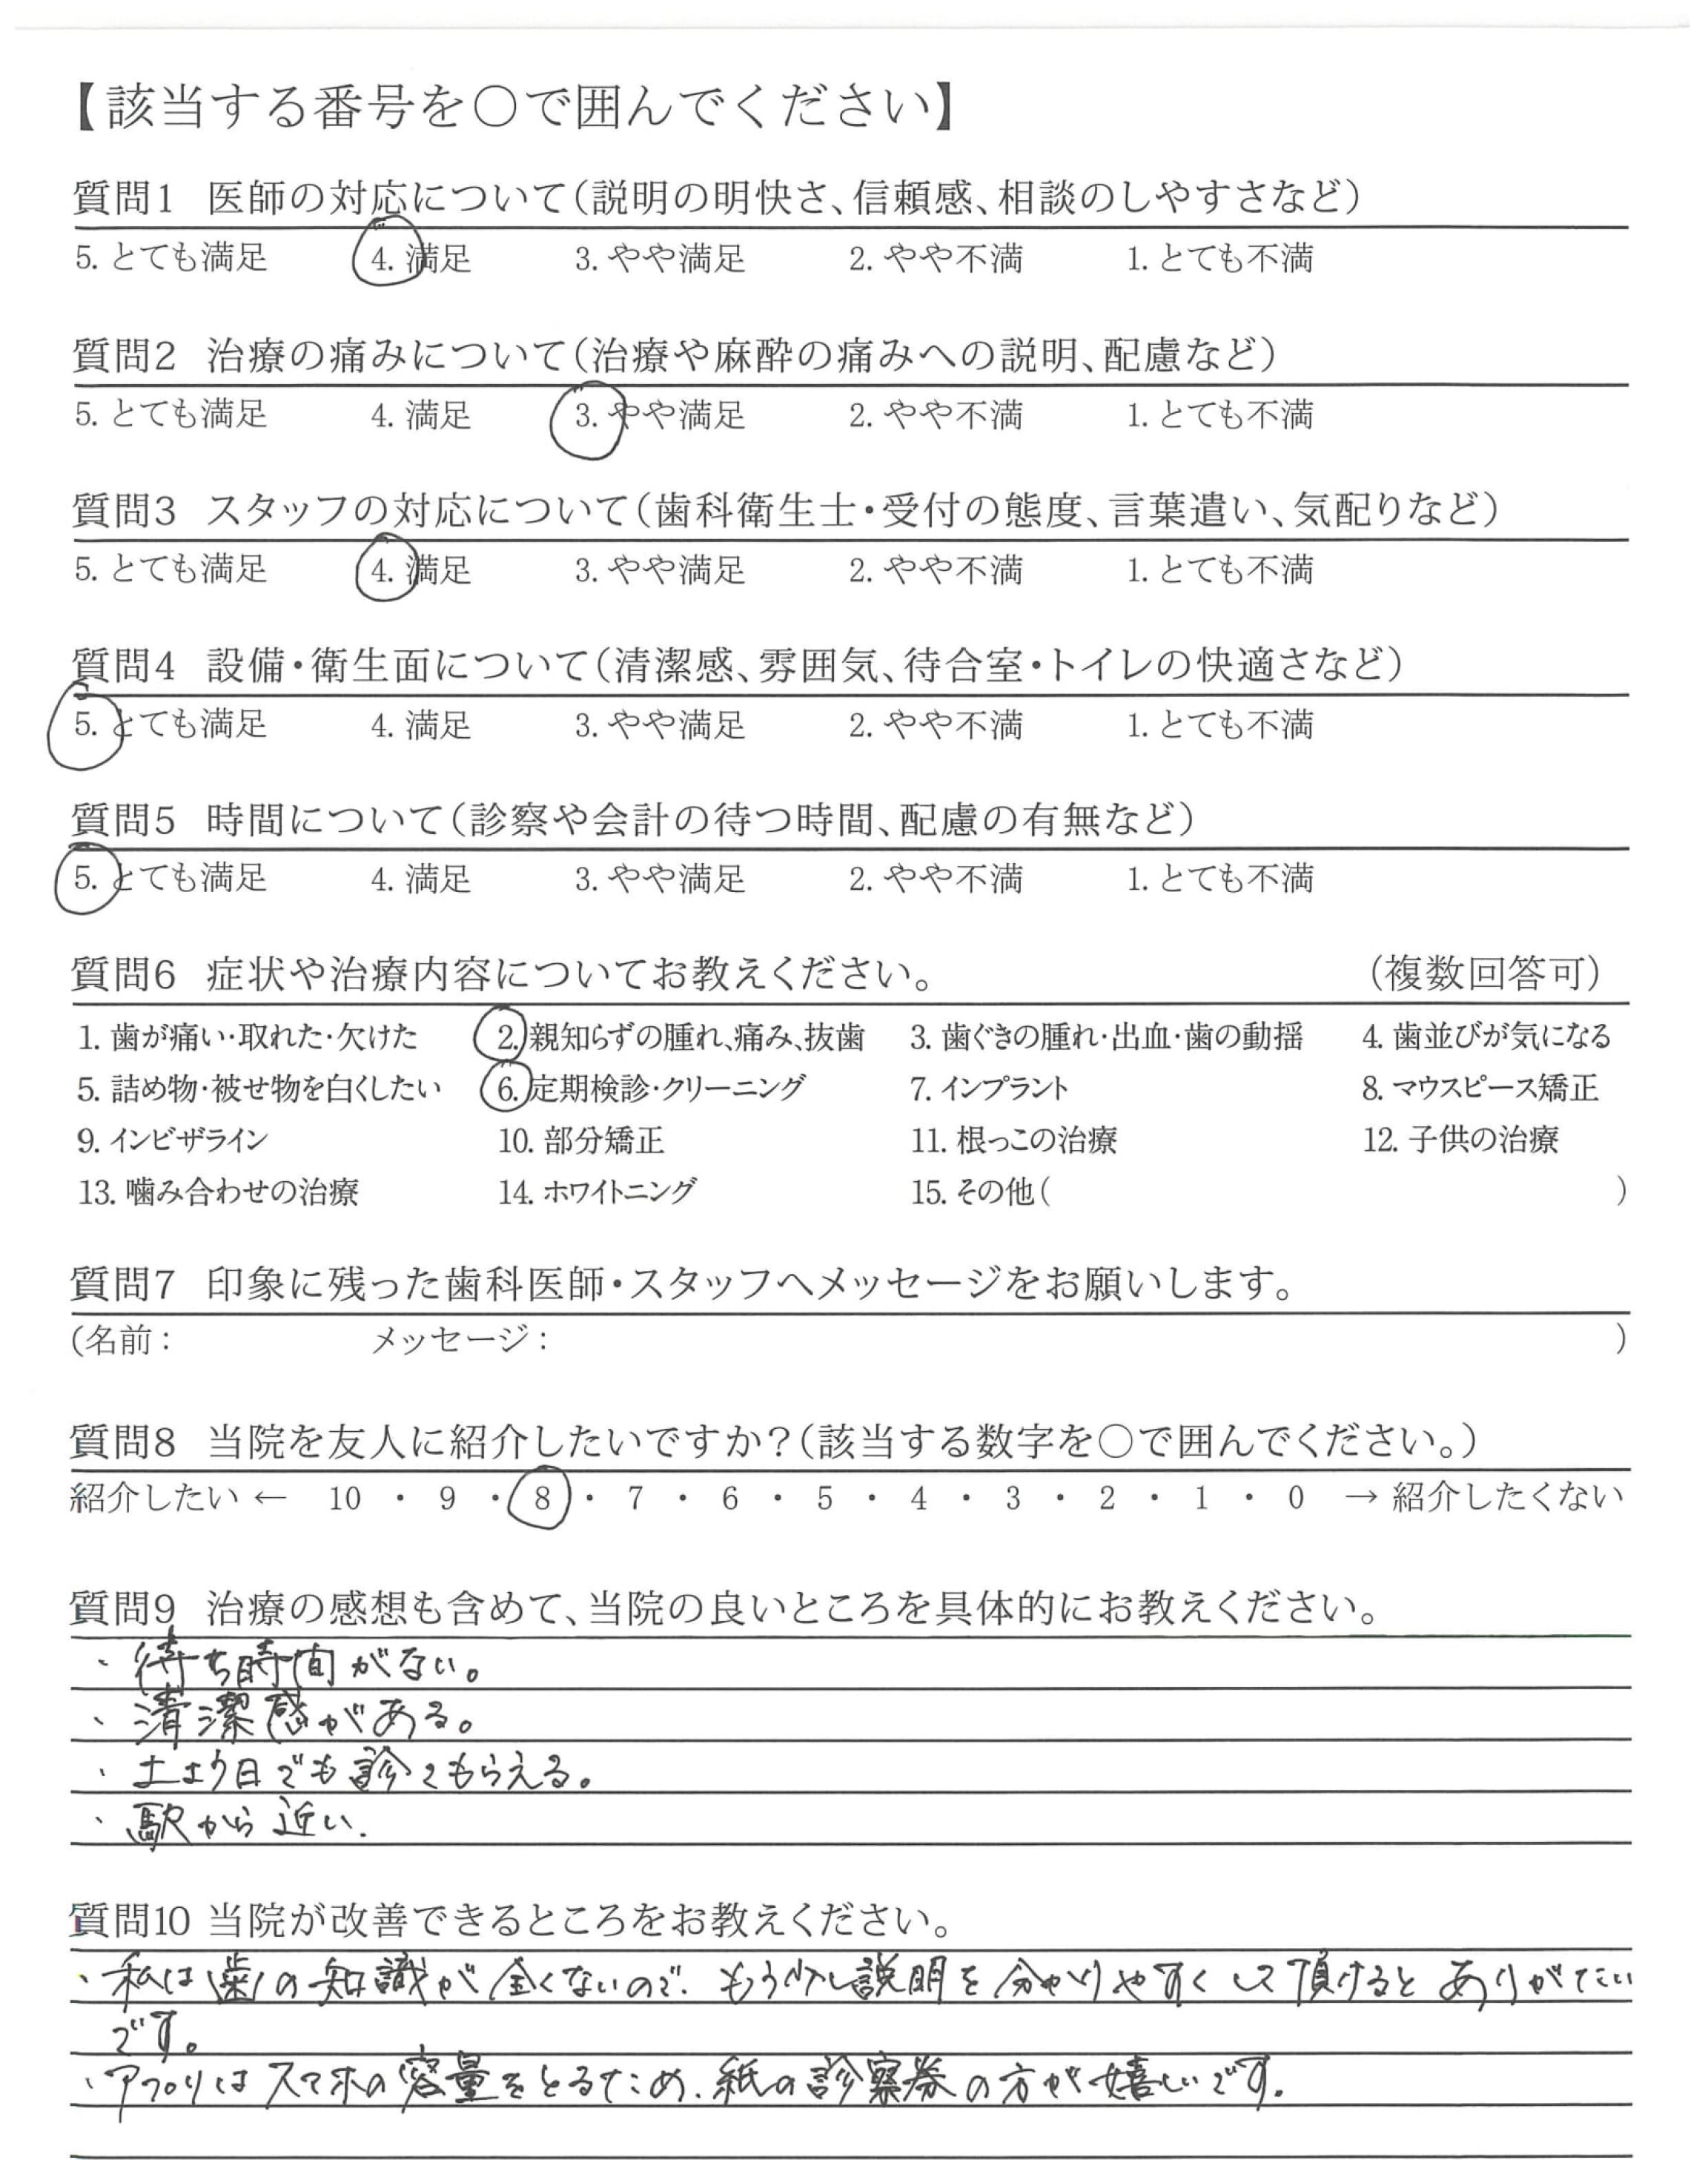 【該当する番号を〇で囲んでください】
質問1 医師の対応について(説明の明快さ、信頼感、相談のしやすさなど)
5. とても満足 4. 満足 3. やや満足 2. やや不満 1. とても不満
質問2 治療の痛みについて(治療や麻酔の痛みへの説明、配慮など)
5. とても満足 4. 満足 3. やや満足 2. やや不満 1. とても不満
質問3 スタッフの対応について(歯科衛生士・受付の態度、言葉遣い、気配りなど)
5. とても満足 4. 満足 3. やや満足 2. やや不満 1. とても不満
質問4 設備・衛生面について(清潔感、雰囲気、待合室・トイレの快適さなど)
5. とても満足 4. 満足 3. やや満足 2. やや不満 1. とても不満
質問5 時間について(診察や会計の待つ時間、配慮の有無など)
5. とても満足 4. 満足 3. やや満足 2. やや不満 1. とても不満
質問6 症状や治療内容についてお教えください。 (複数回答可)
1. 歯が痛い・取れた・欠けた 2. 親知らずの腫れ、痛み、抜歯 3. 歯ぐきの腫れ・出血・歯の動揺 4. 歯並びが気になる
5. 詰め物・被せ物を白くしたい 6. 定期検診・クリーニング 7. インプラント 8. マウスピース矯正
9. インビザライン 10. 部分矯正 11. 根っこの治療 12. 子供の治療
13. 噛み合わせの治療 14. ホワイトニング 15. その他( )
質問7 印象に残った歯科医師・スタッフへメッセージをお願いします。
(名前： メッセージ： )
質問8 当院を友人に紹介したいですか？(該当する数字を〇で囲んでください。)
紹介したい ← 10 ・ 9 ・ 8 ・ 7 ・ 6 ・ 5 ・ 4 ・ 3 ・ 2 ・ 1 ・ 0 → 紹介したくない
質問9 治療の感想も含めて、当院の良いところを具体的にお教えください。
・待ち時間がない。
・清潔感がある。
・土よう日でも診てもらえる。
・駅から近い.
質問10 当院が改善できるところをお教えください。
・私は歯の知識が全くないので、もう少し説明を分かりやすくして頂けるとありがたい
です。
・アプリはスマホの容量をとるため、紙の診察券の方が嬉しいです。